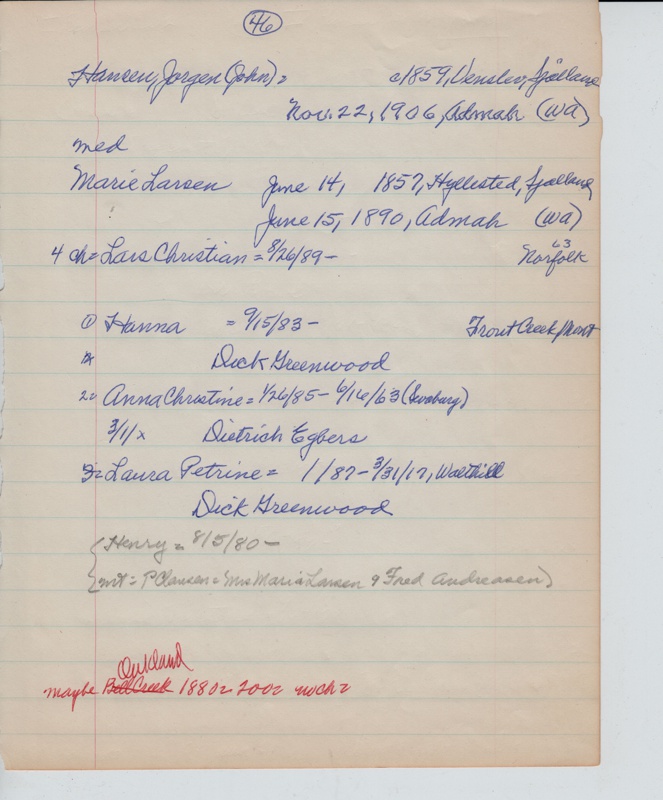 46
Hansen, Jorgen (John) = c1859, Venslev, Sjælland
Nov. 22, 1906, Admah (WA)
med
Marie Larsen June 14, 1857, Hyllested, Sjælland
June 15, 1890, Admah (WA)
4 ch = Lars Christian = 8/26/89 - 63
Norfolk
① Hanna = 9/15/83 - Trout Creek, Mont
Dick Greenwood
2= Anna Christine = 1/26/85 - 6/16/63
3/1/x Dietrich Egbers
3= Laura Petrine = 1/87 - 3/31/17, Walthill
Dick Greenwood
{Henry = 8/5/80 -
{wit = P Clausen = Mrs Maria Larsen & Fred Andreasen)
Oakland
maybe Bell Creek 1880 = 200 = noch =